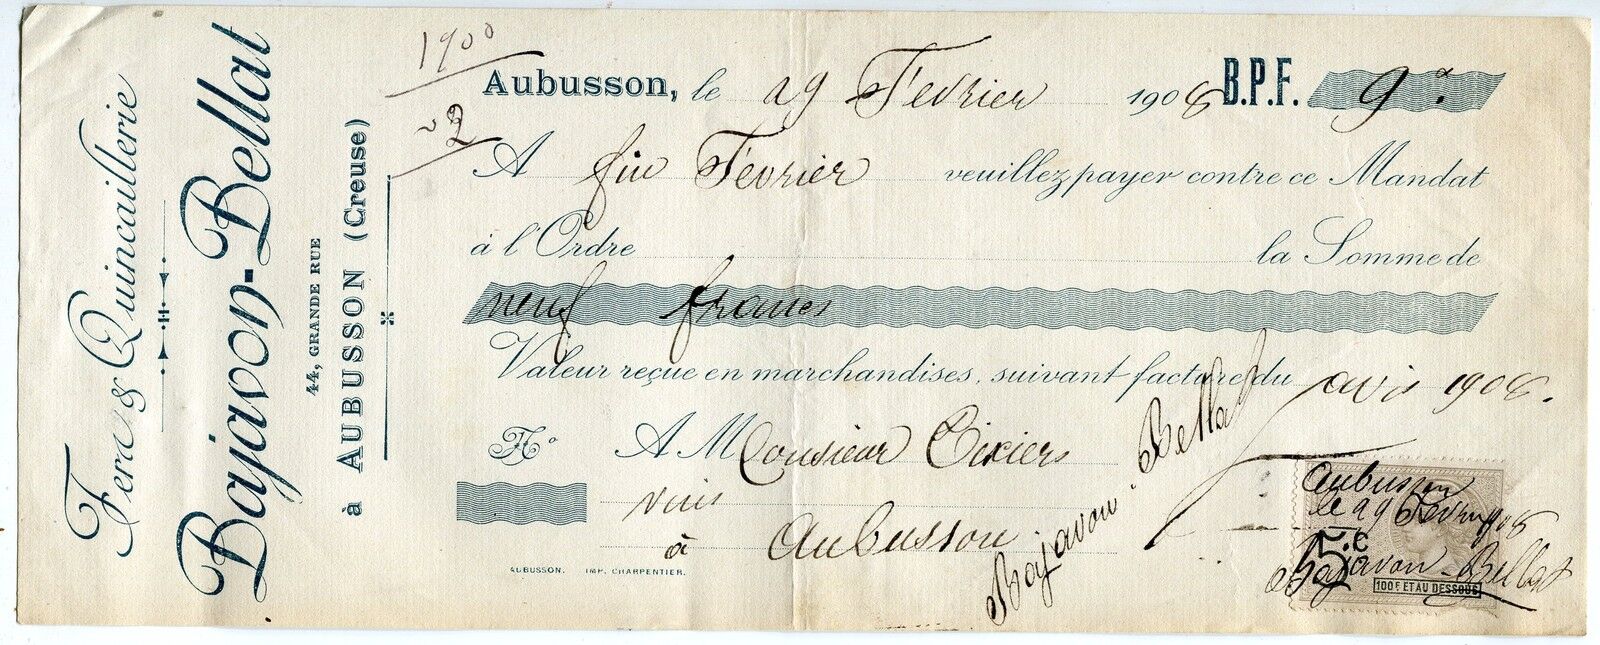 Fers & Quincaillerie
Bajavon-Bellat
44, GRANDE RUE
à AUBUSSON (Creuse)
1900
Aubusson, le 29 Fevrier 1908 B.P.F. 9
A fin Fevrier veuillez payer contre ce Mandat
à l'Ordre la Somme de
neuf francs
Valeur reçue en marchandises, suivant facture du avis 1908.
A Monsieur Tixier
à Aubusson
Bajavon-Bellat
Aubusson
le 29 Fevrier 1908
Bajavon-Bellat
5c
100F ET AU DESSOUS
AUBUSSON. IMP. CHARPENTIER.